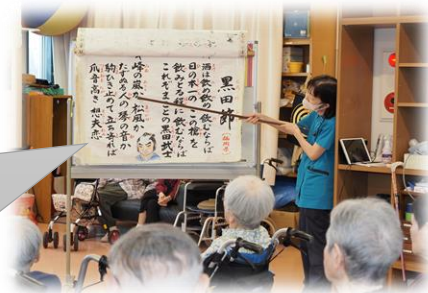 黒田節
(福岡県)
酒は飲め飲め飲むならば
日の本一のこの槍を
飲みとる程に飲むならば
これぞまことの黒田武士
峰の嵐か松風か
たずぬる人の琴の音か
駒ひき止めて立ち寄れば
爪音高き 想夫恋